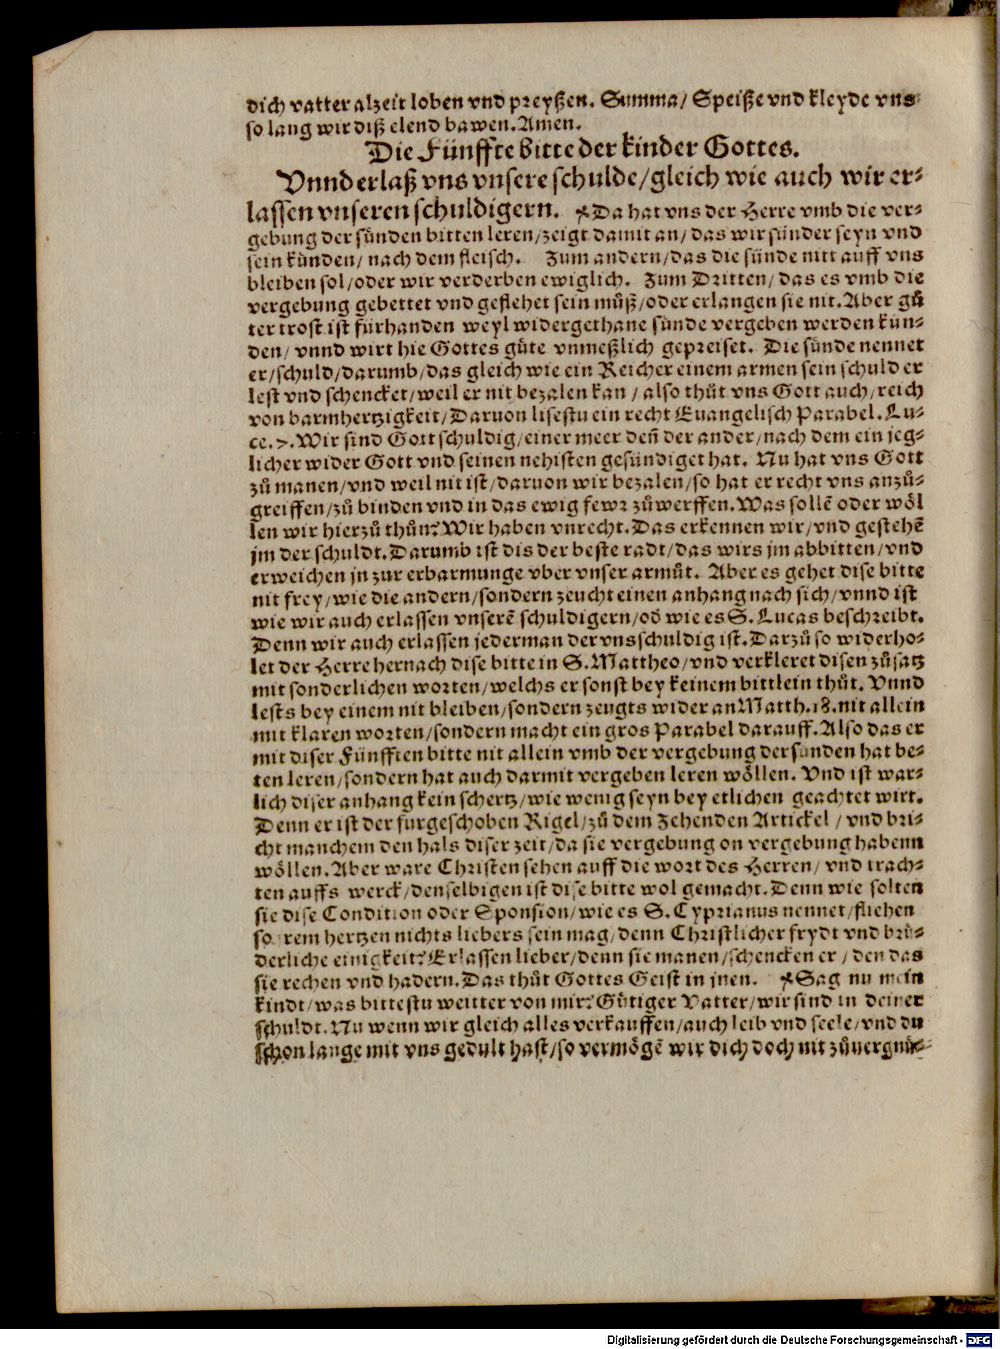 dich vatter alzeit loben vnd preyßen. Summa/ Speiße vnd kleyde vns
so lang wir diß elend bawen. Amen.
Die Fünffte bitte der kinder Gottes.
Vnnd erlaß vns vnsere schulde/gleich wie auch wir er-
lassen vnseren schuldigern. Da hat vns der Herre vmb die ver-
gebung der sünden bitten leren/zeigt damit an/das wir sünder seyn vnd
sein künden/ nach dem fleisch. Zum andern/das die sünde nitt auff vns
bleiben sol/oder wir verderben ewiglich. Zum Dritten/das es vmb die
vergebung gebettet vnd geflehet sein můß/oder erlangen sie nit. Aber gů
ter trost ist fürhanden weyl widergethane sünde vergeben werden kün-
den/ vnnd wirt hie Gottes gůte vnmeßlich gepreiset. Die sünde nennet
er/schuld/darumb/das gleich wie ein Reicher einem armen sein schuld er
lest vnd schencket/weil er nit bezalen kan/ also thůt vns Gott auch/reich
von barmhertzigkeit/Daruon lisestu ein recht Euangelisch Parabel. Lu-
ce. 7. Wir sind Gott schuldig/einer meer deñ der ander/nach dem ein jeg-
licher wider Gott vnd seinen nehisten gesündiget hat. Nu hat vns Gott
zů manen/vnd weil nit ist/daruon wir bezalen/so hat er recht vns anzů-
greiffen/zů binden vnd in das ewig fewr zůwerffen. Was sollē oder wöl
len wir hierzů thůn? Wir haben vnrecht. Das erkennen wir/vnd gestehē
jm der schuldt. Darumb ist dis der beste radt/das wirs jm abbitten/vnd
erweichen jn zur erbarmunge vber vnser armůt. Aber es gehet dise bitte
nit frey/wie die andern/sondern zeucht einen anhang nach sich/vnnd ist
wie wir auch erlassen vnserē schuldigern/oď wie es S. Lucas beschreibt.
Denn wir auch erlassen jederman der vns schuldig ist. Darzů so widerho-
let der Herre hernach dise bitte in S. Mattheo/vnd verkleret disen zůsatz
mit sonderlichen worten/welchs er sonst bey keinem bittlein thůt. Vnnd
lests bey einem nit bleiben/sondern zeugts wider an Matth. 18. nit allein
mit klaren worten/sondern macht ein gros Parabel darauff. Also das er
mit diser Fünfften bitte nit allein vmb der vergebung der sunden hat be-
ten leren/sondern hat auch darmit vergeben leren wöllen. Vnd ist war-
lich diser anhang kein schertz/wie wenig seyn bey etlichen geachtet wirt.
Denn er ist der furgeschoben Rigel/zů dem Zehenden Artickel/ vnd bri-
cht manchem den hals diser zeit/da sie vergebung on vergebung habenn
wöllen. Aber ware Christen sehen auff die wort des Herren/ vnd trach-
ten auffs werck/denselbigen ist dise bitte wol gemacht. Denn wie solten
sie dise Condition oder Sponsion/wie es S. Cyprianus nennet/fliehen
so rem hertzen nichts liebers sein mag/denn Christlicher frydt vnd brů-
derliche einigkeit? Erlassen lieber/denn sie manen/schencken er/ den das
sie rechen vnd hadern. Das thůt Gottes Geist in jnen. Sag nu mein
kindt/was bittestu weitter von mir? Gütiger Vatter/wir sind in deiner
schuldt. Nu wenn wir gleich alles verkauffen/auch leib vnd seele/vnd du
schon lange mit vns gedult hast/so vermögē wir dich doch nit zůuergnů-
Digitalisierung gefördert durch die Deutsche Forschungsgemeinschaft - DFG